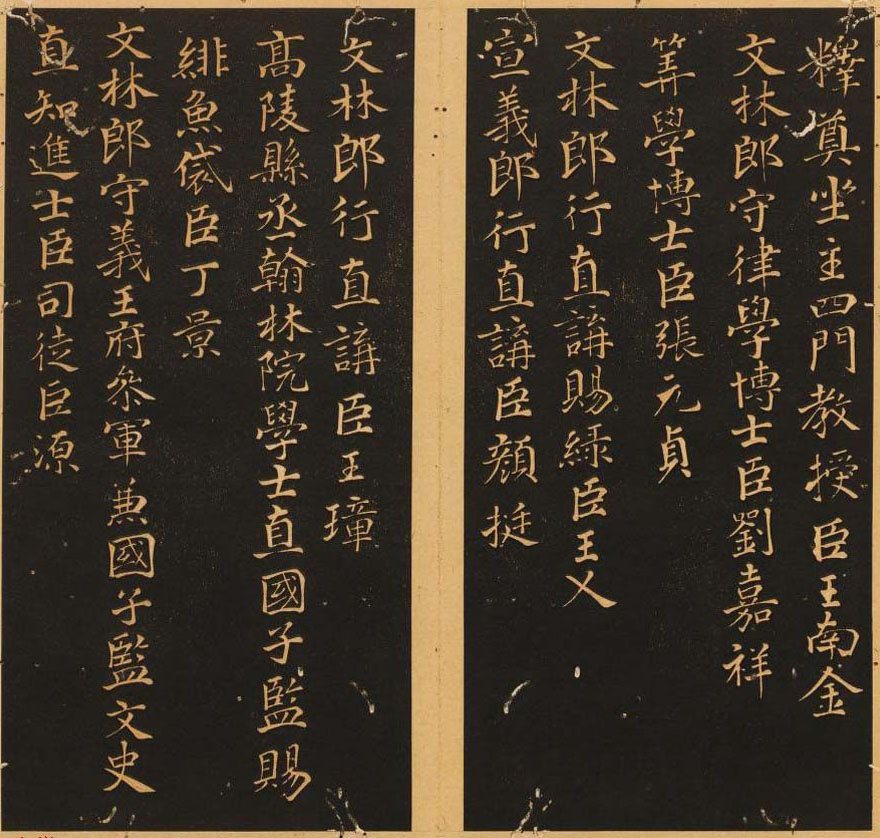 釋奠坐主四門教授臣王南金
文林郎守律學博士臣劉嘉祥
筭學博士臣張元貞
文林郎行直講賜綠臣王乂
宣義郎行直講臣顏挺
文林郎行直講臣王璋
高陵縣丞翰林院學士直國子監賜
緋魚袋臣丁景
文林郎守義王府叅軍兼國子監文史
直知進士臣司徒臣源